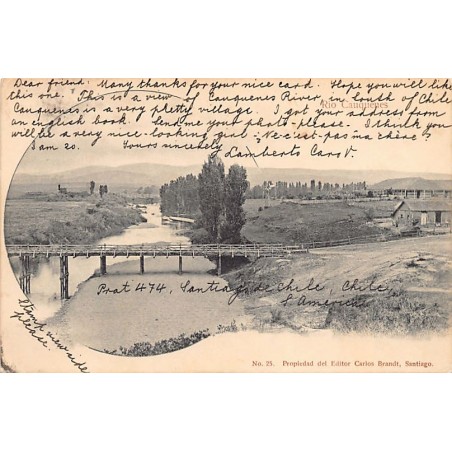 Dear friend: Many thanks for your nice card. Hope you will like
this one. This is a view of Cauquenes River, in South of Chile
Rio Cauquenes
Cauquenes is a very pretty village. I got your address from
an english book. Send me your photo-please. I think you
will be a very nice-looking girl: N'ec'est-pas ma chère?
I am 20. Yours sincerely
Lamberto Caro V.
Prat 474, Santiago de Chile, Chile,
S. America
Stamp view side
please.
No. 25. Propiedad del Editor Carlos Brandt, Santiago.